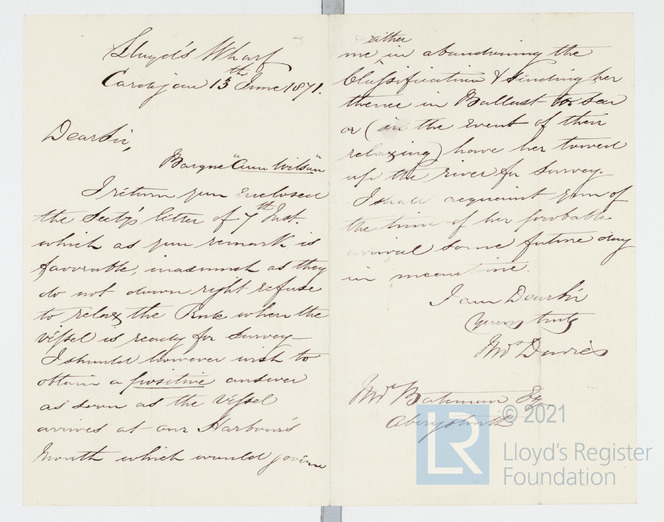 Lloyd's Wharf
Cardigan 13th June 1871.
Dear Sir,
Barque "Ann Wilson"
I return you enclosed
the Secty's letter of 7th Inst.
which as you remark is
favorable, inasmuch as they
do not down right refuse
to relax the Rule when the
Vessel is ready for Survey –
I should however wish to
obtain a positive answer
as soon as the Vessel
arrives at our Harbour's
Mouth which would govern
me either in abandoning the
Classification & sending her
thence in Ballast to sea
or (in the event of their
relaxing) have her towed
up the river for Survey.
I shall acquaint you of
the time of her probable
arrival some future day
in meantime.
I am Dear Sir
Yours truly
Wm Davies
Wm Bateman Esq
Aberystwith
LR © 2021
Lloyd's Register
Foundation